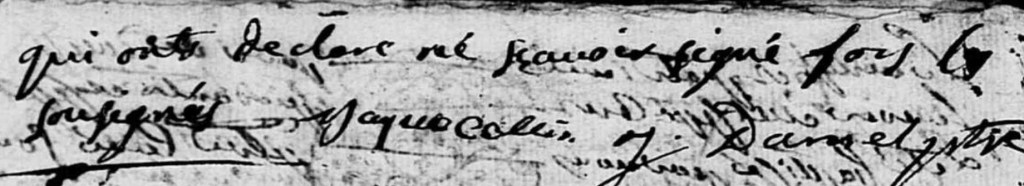 qui onts declare né sçavoir signé fors les
sousignés Jaque Collin J. Daniel ptre